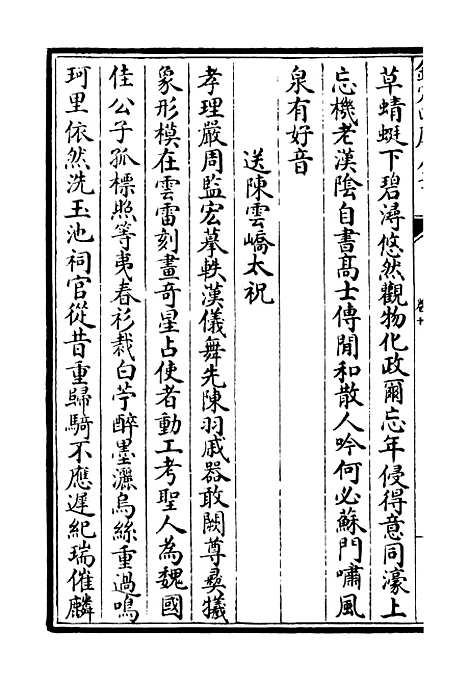 草蜻蜓下碧潯悠然觀物化政爾忘年侵得意同濠上
忘機老漢陰自書髙士傳閒和散人吟何必蘇門嘯風
泉有好音
送陳雲嶠太祝
孝理嚴周監宏摹軼漢儀舞先陳羽戚器敢闕尊彞犧
象形模在雲雷刻畫奇星占使者動工考聖人為魏國
佳公子孤標照等夷春衫裁白苧醉墨灑烏絲重過鳴
珂里依然洗玉池祠官從昔重歸騎不應遲紀瑞催麟